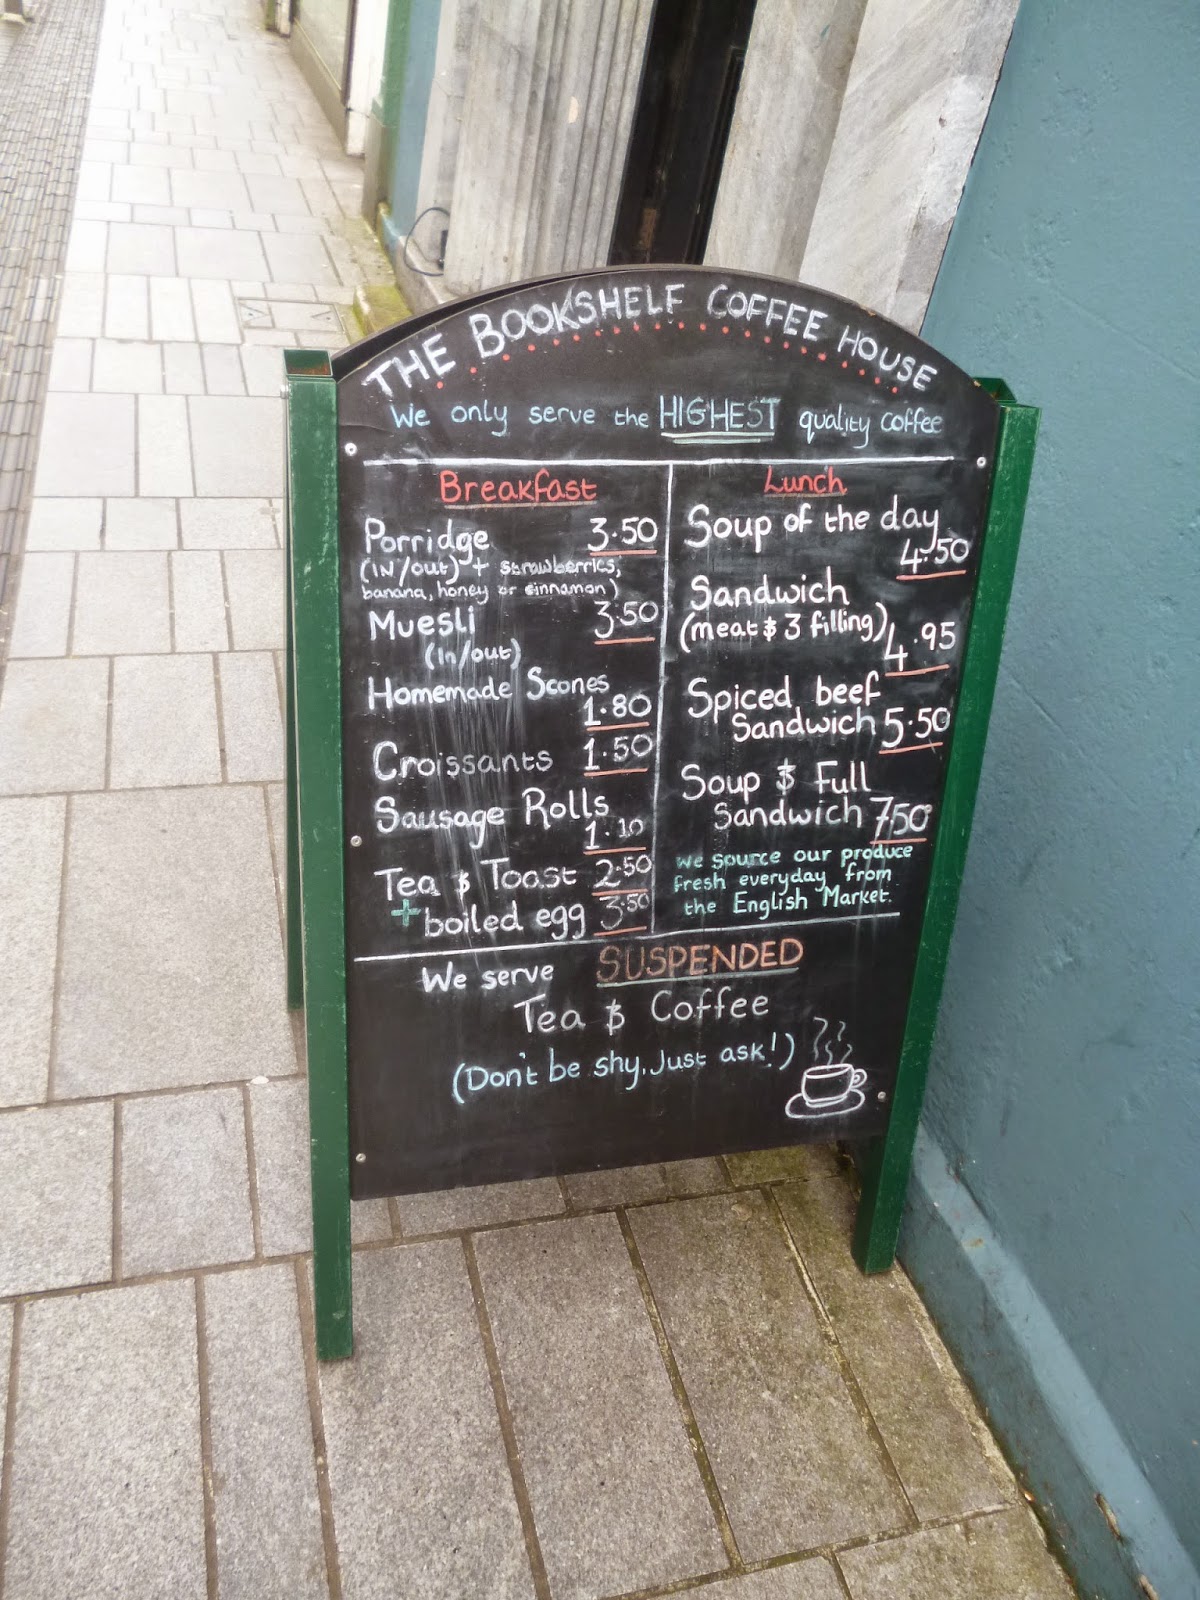 THE BOOKSHELF COFFEE HOUSE
We only serve the HIGHEST quality coffee
Breakfast
Porridge 3.50
(IN/out) + strawberries,
banana, honey or cinnamon)
Muesli 3.50
(In/out)
Homemade Scones
1.80
Croissants 1.50
Sausage Rolls
1.10
Tea & Toast 2.50
+ boiled egg 3.50
Lunch
Soup of the day
4.50
Sandwich
(meat & 3 filling) 4.95
Spiced beef
Sandwich 5.50
Soup & Full
Sandwich 7.50
We source our produce
fresh everyday from
the English Market.
We serve SUSPENDED
Tea & Coffee
(Don't be shy, Just ask!)